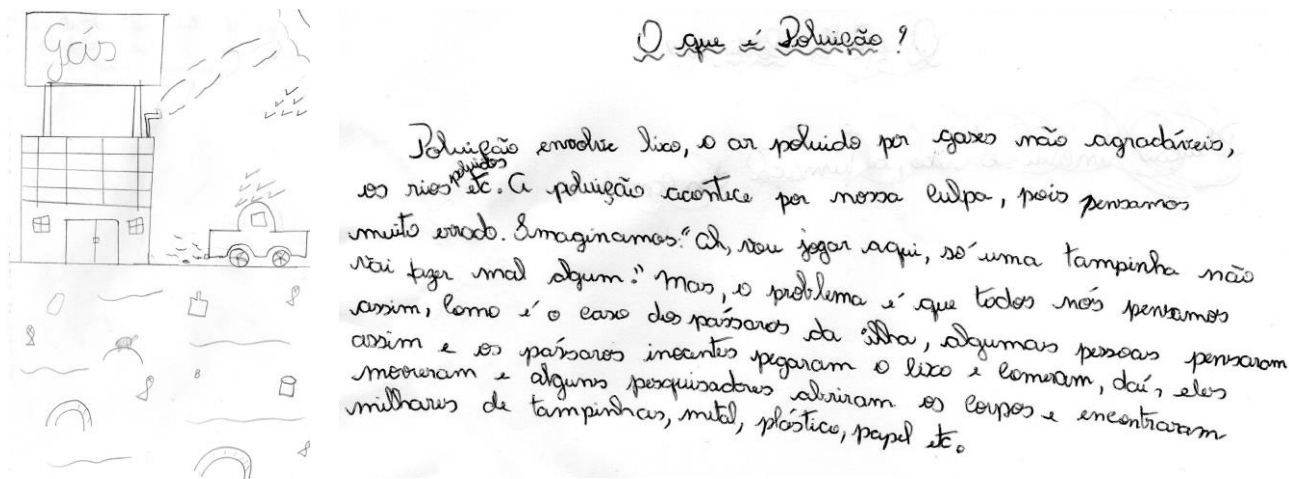 Gás
O que é Poluição?
Poluição envolve lixo, o ar poluido por gases não agradáveis,
os rios poluidos etc. A poluição acontece por nossa culpa, pois pensamos
muito errado. Imaginamos: "Ah, vou jogar aqui, só uma tampinha não
vai fazer mal algum." Mas, o problema é que todos nós pensamos
assim, como é o caso dos pássaros da ilha, algumas pessoas pensaram
assim e os pássaros inocentes pegaram o lixo e comeram, daí, eles
morreram e alguns pesquisadores abriram os corpos e encontraram
milhares de tampinhas, metal, plástico, papel etc.